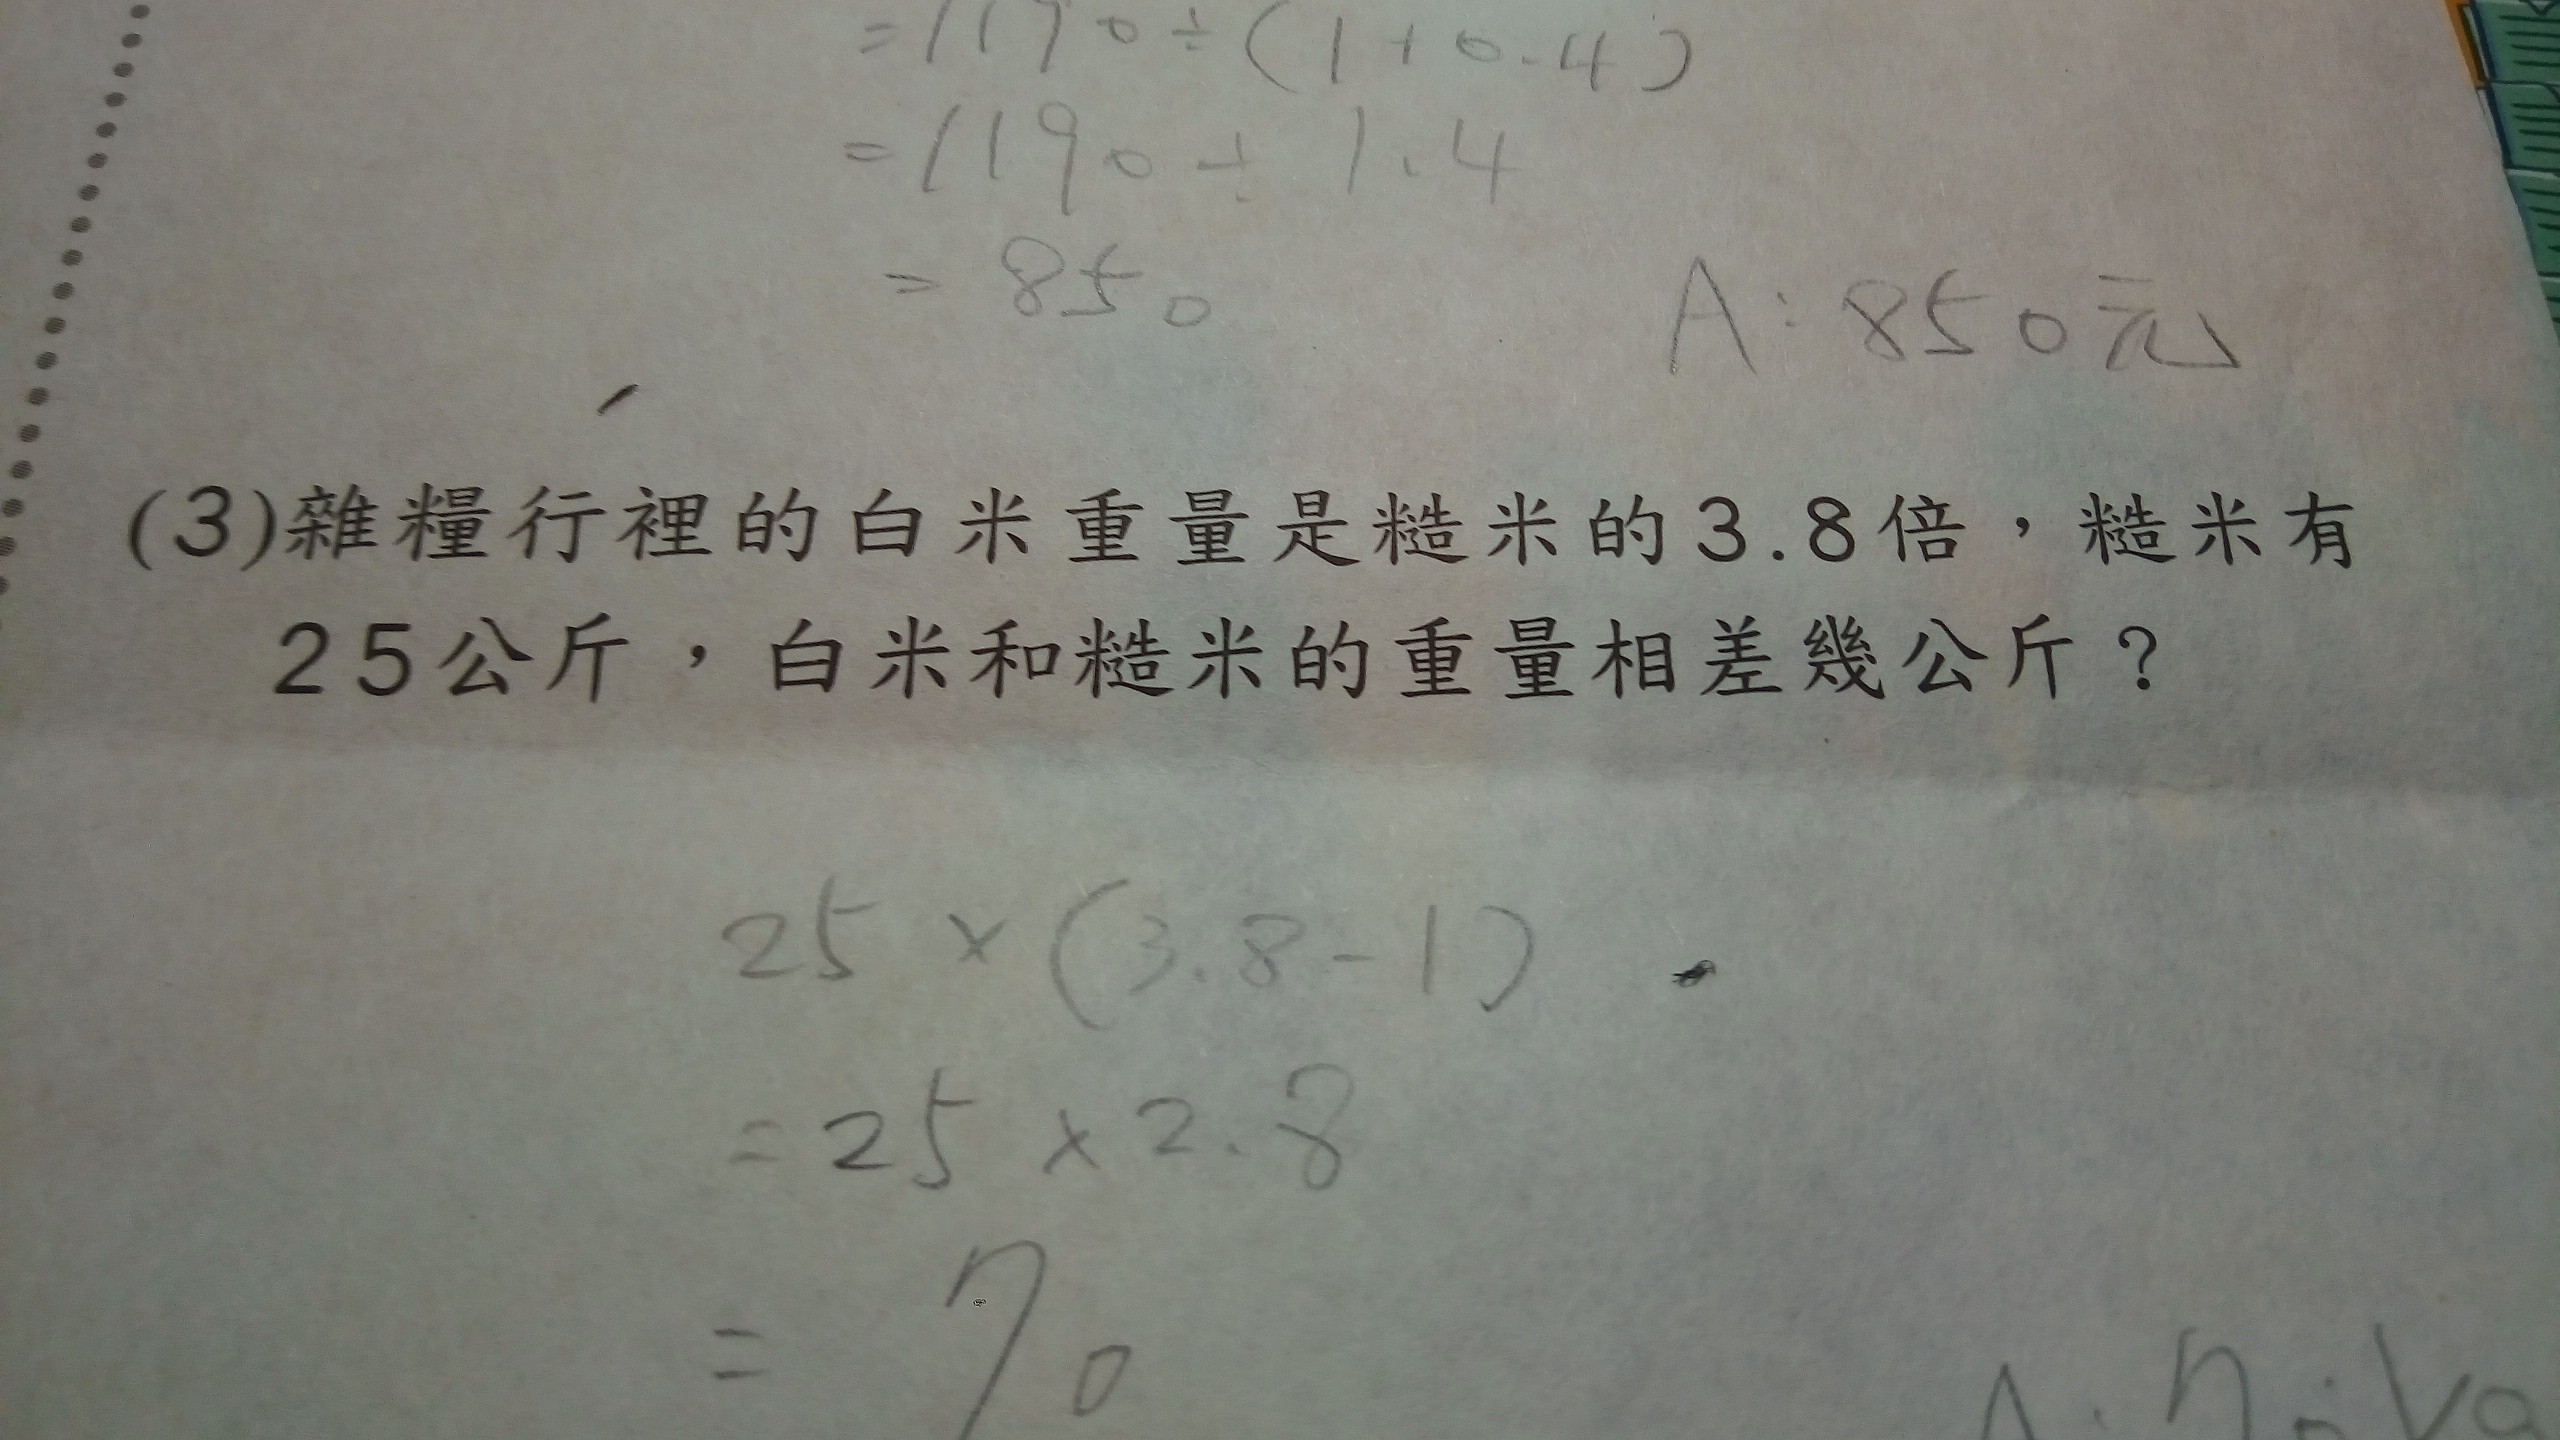 =1190÷(1+0.4)
=1190÷1.4
=850
A:850元
(3)雜糧行裡的白米重量是糙米的3.8倍，糙米有
25公斤，白米和糙米的重量相差幾公斤？
25×(3.8-1)
=25×2.8
=70